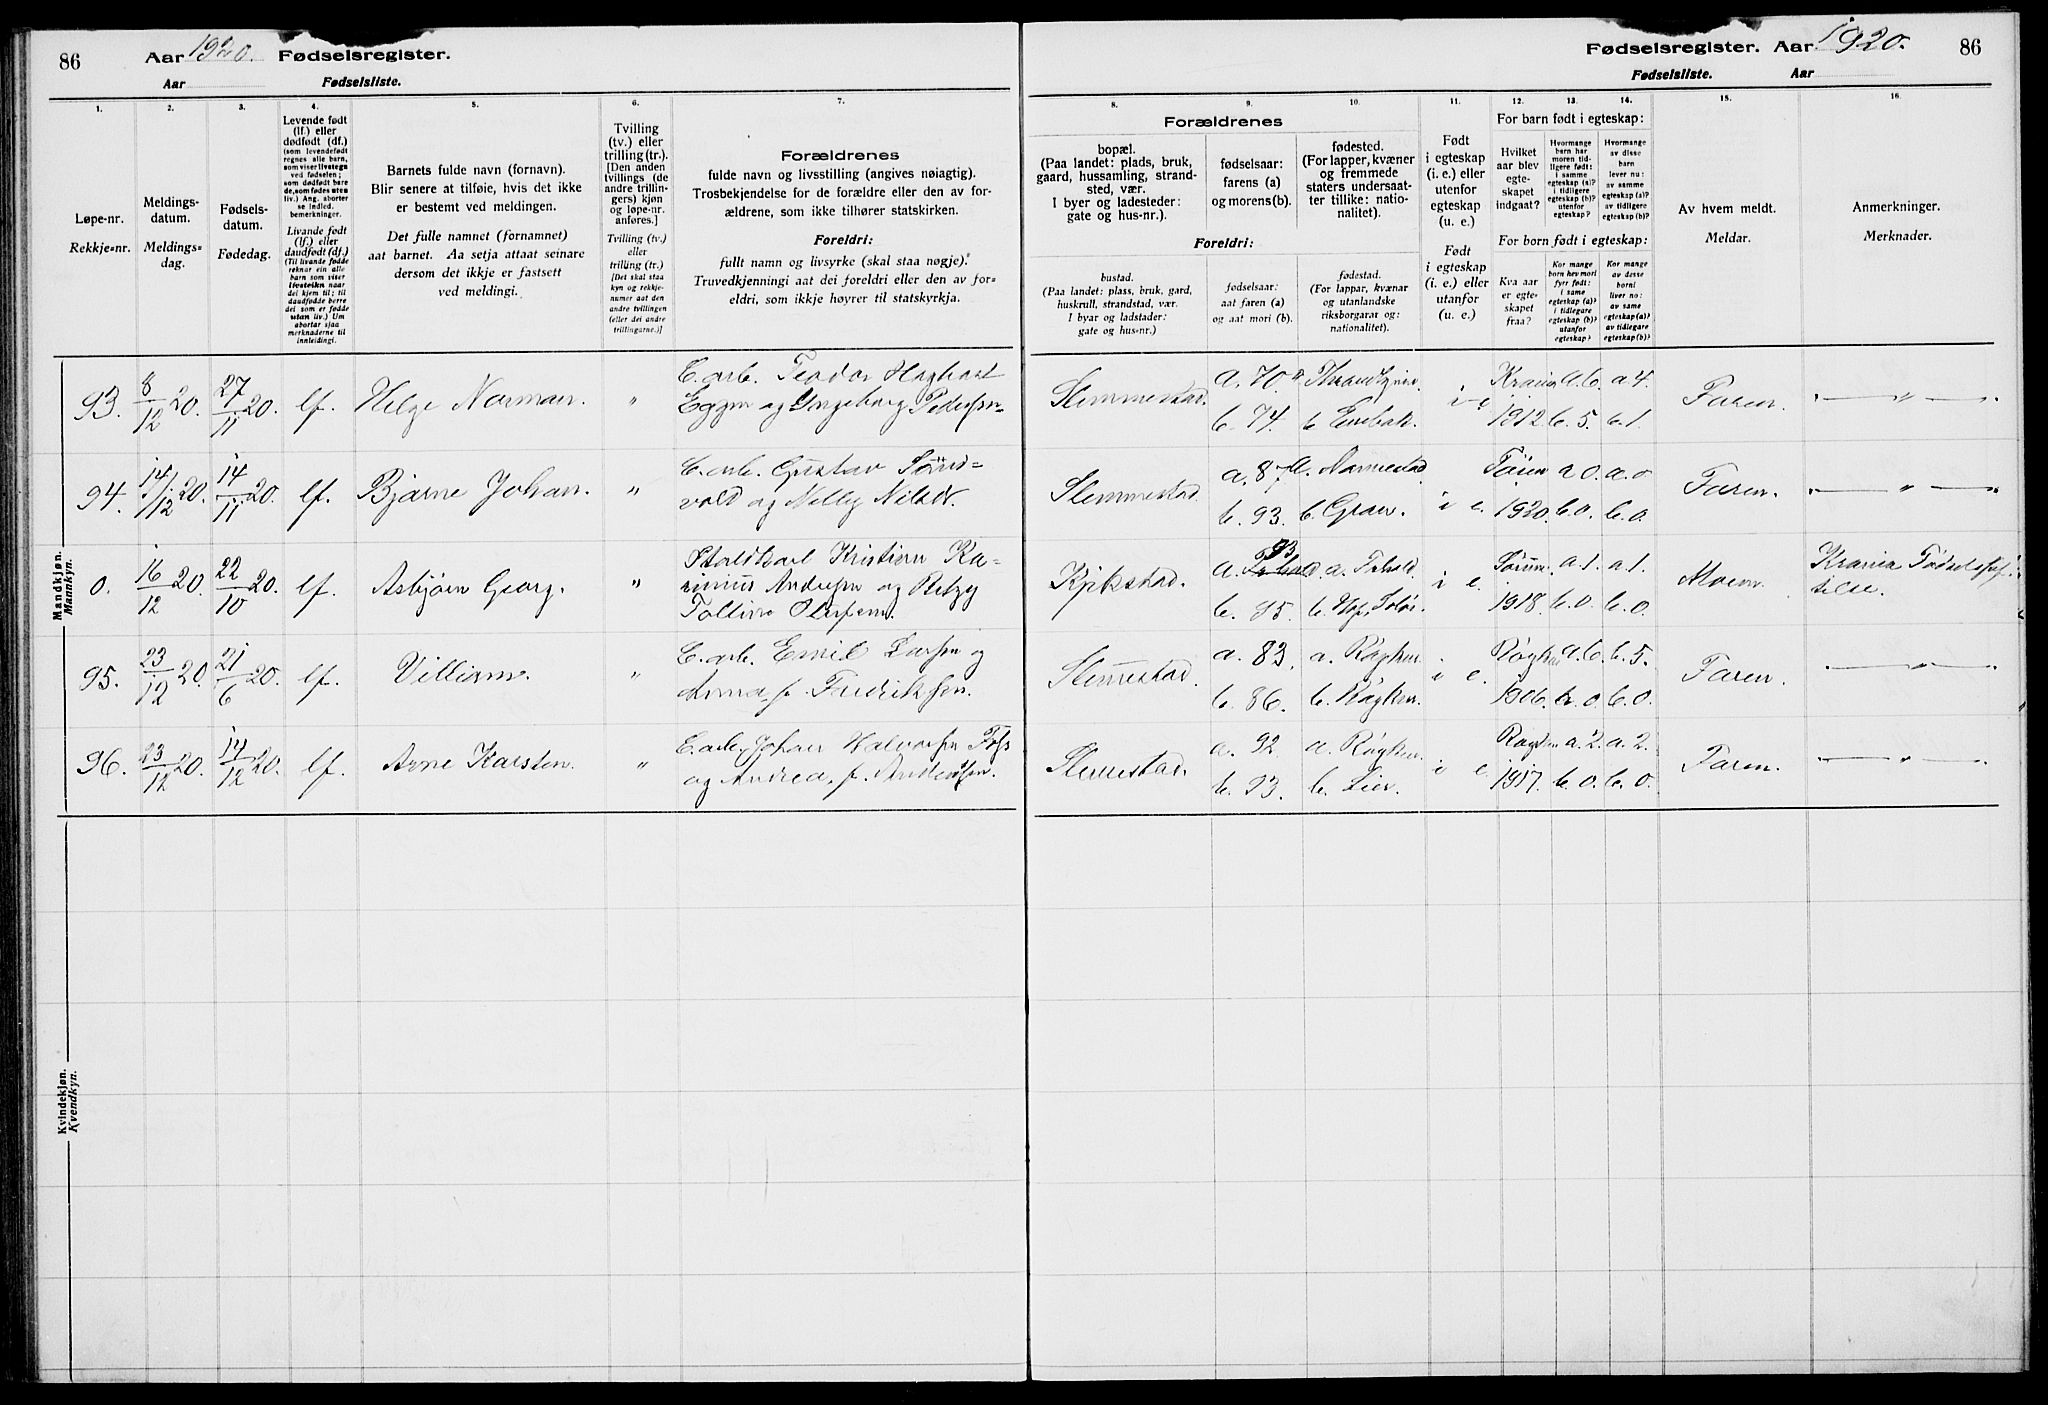 86
Aar 1920. Fødselsregister.
Aar Fødselsliste.
1.
2.
3.
4.
5.
6.
7.
Løpe-nr.
Rekkje=nr.
Meldings-
datum.
Meldings=
dag.
Fødsels-
datum.
Fødedag.
Levende født
(lf.) eller
dødfødt (df.)
(som levendefødt
regnes alle barn,
som viser livstegn
ved fødselen;
som dødfødt bare
de, som fødes uten
liv.) Ang. aborter
se indled.
bemerkninger.
Livande født
(lf.) eller
daudfødt (df.)
(Til livande fødde
reknar ein alle
barn som viser
livsteikn naar
dei kjem til; til
daudfødde berre
dei som er fødde
utan liv.) Um
abortar sjaa
merknaderne til
innleidingi.
Barnets fulde navn (fornavn).
Blir senere at tilføie, hvis det ikke
er bestemt ved meldingen.
Det fulle namnet (fornamnet)
aat barnet. Aa setja attaat seinare
dersom det ikkje er fastsett
ved meldingi.
Tvilling
(tv.) eller
trilling (tr.).
[Den anden
tvillings (de
andre trillin-
gers) kjøn
og løpe-nr.
anføres.]
Tvilling (tv.)
eller
trilling (tr.)
[Det skal staa
kyn og rekkje-
numer aat den
andre tvillingen
(eller dei andre
trillingarne.)]
Forældrenes
fulde navn og livsstilling (angives nøiagtig).
Trosbekjendelse for de forældre eller den av for-
ældrene, som ikke tilhører statskirken.
Foreldri:
fullt namn og livsyrke (skal staa nøgje).
Truvedkjenningi aat dei foreldri eller den av for=
eldri, som ikkje høyrer til statskyrkja.
Mandkjøn.
Mannkyn.
93. 8/12 20. 27/11 20. lf. Helge Norman. " C. arb. Teodor Hagbart
Eggen og Ingeborg Pedersen.
94. 14/12 20. 14/11 20. lf. Bjarne Johan. " C. arb. Gustav
vold og Nelly
0. 16/12 20. 22/10 20. lf. Asbjørn Georg. " Staldkarl Kristian Ra-
Andersen og
Olafsen.
95. 23/12 20. 21/6 20. lf. Villiam. " C. arb. Emil Larsen og
Anna, f. Fredriksen.
96. 23/12 20. 14/12 20. lf. Arne Karsten. " C. arb. Johan Halvorsen
og Andrea, f. Andersen.
Kvindekjøn.
Kvendkyn.
Fødselsregister. Aar 1920. 86
Fødselsliste. Aar
8.
9.
10.
11.
12.
13.
14.
15.
16.
Forældrenes
bopæl.
(Paa landet: plads, bruk,
gaard, hussamling, strand-
sted, vær.
I byer og ladesteder:
gate og hus-nr.).
fødselsaar:
farens (a)
og morens (b).
fødested.
(For lapper, kvæner
og fremmede
staters undersaat-
ter tillike: natio-
nalitet).
Foreldri:
bustad.
(Paa landet: plass, bruk, gard,
huskrull, strandstad, vær.
I byar og ladstader:
gate og hus-nr.)
fødselsaar:
aat faren (a)
og aat mori (b).
fødestad.
(For lappar, kvænar
og utanlandske
riksborgarar og:
nationalitet).
Født
i egteskap
(i. e.) eller
utenfor
egteskap
(u. e.)
Født
i egteskap
(i. e.) eller
utanfor
(u. e.)
For barn født i egteskap:
Hvilket
aar blev
egte-
skapet
indgaat?
Hvormange
barn har
moren tid-
ligere født:
i samme
egteskap (a)?
i tidligere
egteskap (b)?
utenfor
egteskap?
Hvormange
av disse
barn
lever nu:
av samme
egteskap (a)?
av tidligere
egteskap (b)?
For born født i egteskap:
Kva aar
er egte-
skapet
fraa?
Kor mange
born hev mori
fyrr født:
i same
egteskap (a)?
i tidlegare
egteskap (b)?
utanfor
egteskap?
Kor mange
av desse
borni
liver no:
av same
egteskap (a)?
av tidlegare
egteskap (b)?
Av hvem meldt.
Meldar.
Anmerkninger.
Merknader.
Slemmestad. a. 70. i e. Krania a. 6. a 4. Faren. — " —
b. 74. b Enebak. 1912. b. 5. b. 1.
Slemmestad. a. 87. a. i e. a 0. a. 0 Faren. — " —
b. 93. b. Gran. 1920. b. 0. b. 0.
Kjekstad. a. 93. a. i e. Sørum. a. 1. a. 1. Moren. Krania Fødselsstif-
b. 85. b. 1918. b. 0. b. 0. telse.
Slemmestad. a. 83. a. Røyken. i e. Røyken a. 6. b. 5. Faren. — " —
b. 86. b. Røyken. 1906. b. 0. b. 0.
Slemmestad. a. 92. a. Røyken. i e. Røyken a. 2. a. 2. Faren. — " —
b. 93. b. Lier. 1917. b. 0. b. 0.